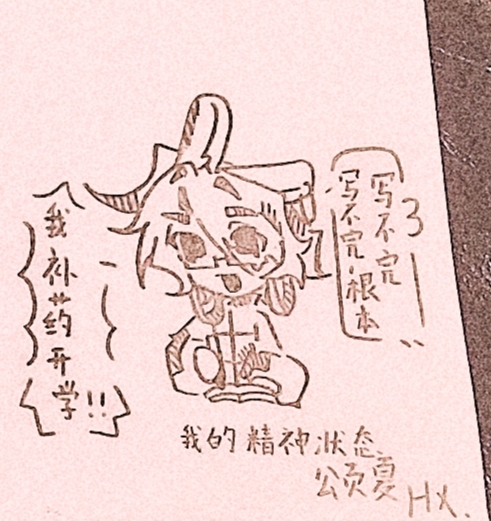 我补药开学!!
写不完,根本
写不完
我的精神状态
颂夏
HX.